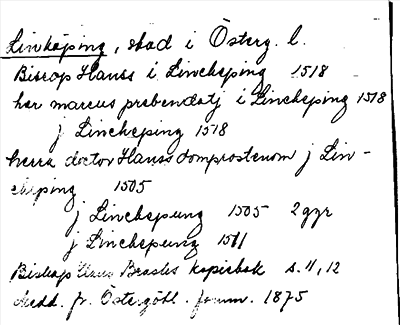 Linköping, stad i Österg. l.
Biscop Hanss i Lincheping 1518
her marcus prebendatj i Lincheping 1518
j Lincheping 1518
herra doctor Hanss domprostenom j Lin-
cheping 1505
j Linchepung 1505 2 ggr
j Linchepung 1511
Biskop Hans Brasks kopiebok s. 11, 12
Medd. fr. Östergötl. fornm. 1875